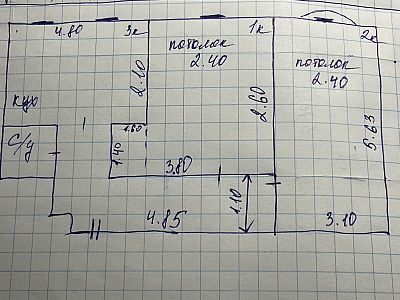 4.80
3к
1к
2к
потолок
2.40
потолок
2.40
2.10
2.60
5.63
кух
с/у
1.60
1.40
3.80
1.10
4.85
3.10